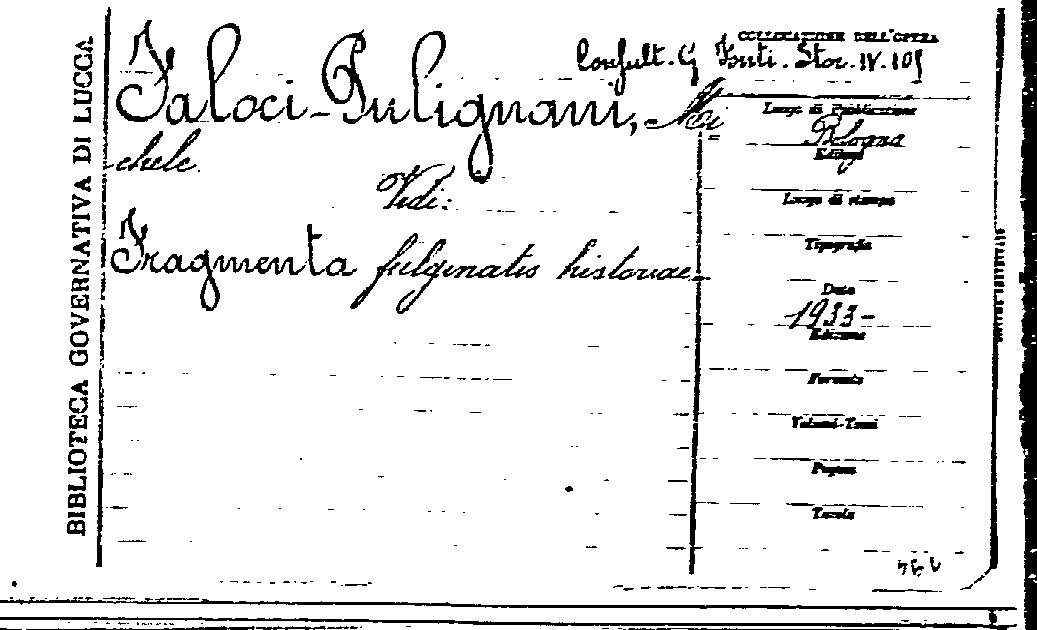 BIBLIOTECA GOVERNATIVA DI LUCCA
COLLOCAZIONE DELL'OPERA
Consult. G Fonti. Stor. IV. 105
Faloci-Pulignani, Mi=
chele.
Vedi:
Fragmenta fulginatis historiae.
Luogo di Pubblicazione
Bologna
Editore
Luogo di stampa
Tipografia
Data
1933-
Edizione
Formato
Volumi-Tomi
Pagine
Tavole